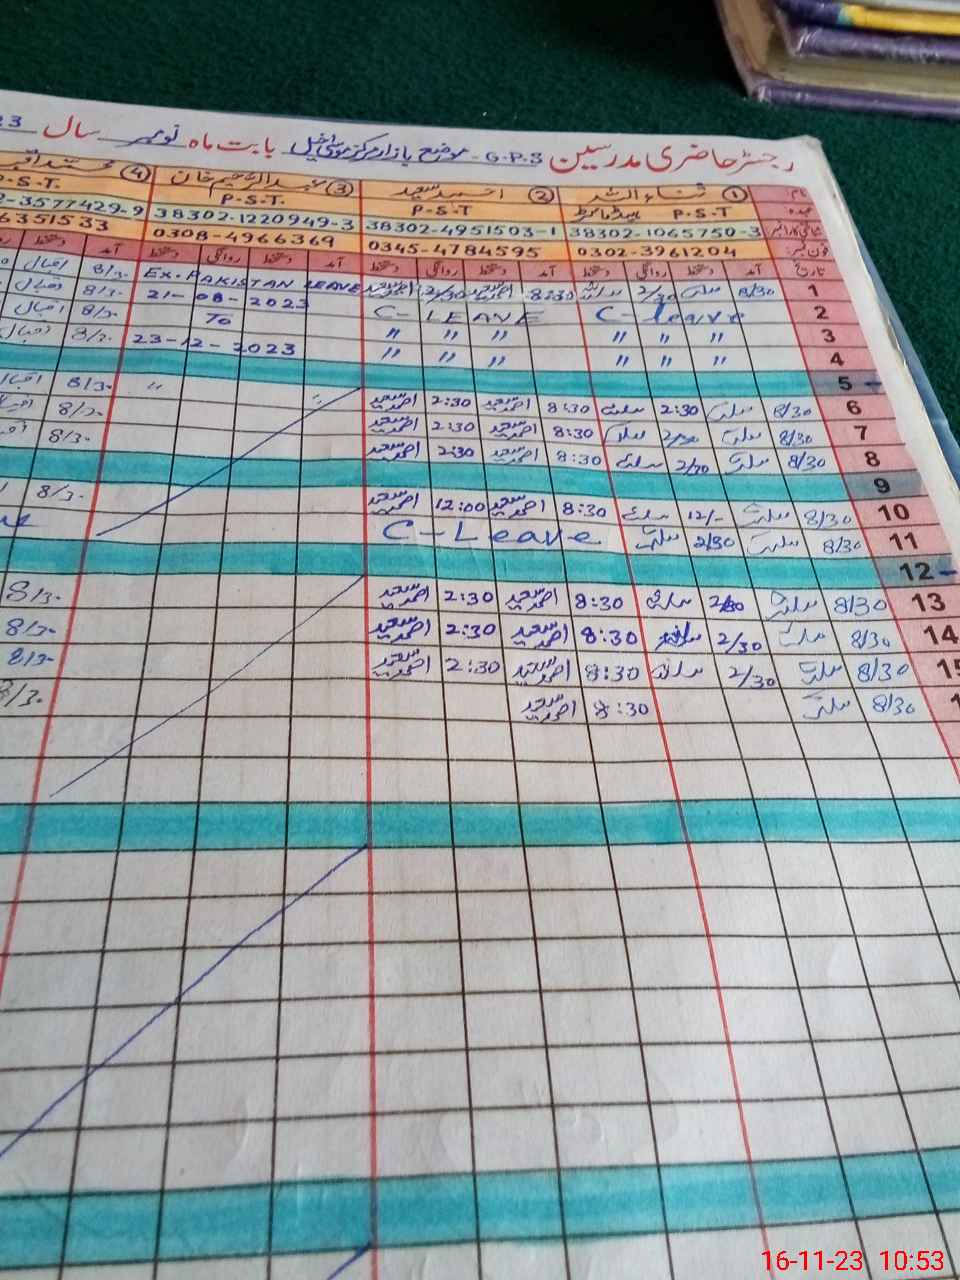 رجسٹر حاضری مدرسین G.P.S - موضع بازار مرکز موسیٰ خیل بابت ماہ نومبر سال 23
نام ① ثناء اللہ ② احمد سعید ③ عبدالرحیم خان ④ محمد
عہدہ P.S.T ہیڈ ماسٹر P-S-T P-S-T. P.S.T.
شناختی کارڈ نمبر 38302-1065750-3 38302-4951503-1 38302-1220949-3 2-3577429-9
فون نمبر: 0302-3961204 0345-4784595 0308-4966369 6351533
تاریخ آمد دستخط روانگی دستخط آمد دستخط روانگی دستخط آمد دستخط روانگی دستخط آمد
1 8/30 2/30 8:30 احمد سعید 12/30 احمد سعید Ex-PAKISTAN LEAVE 8/30 اقبال
2 C-leave C-LEAVE 21-08-2023 8/30 اقبال
3 " " " " " " To 8/30 اقبال
4 " " " " " " 23-12-2023 8/30 اقبال
5 -
6 8/30 2:30 8:30 احمد سعید 2:30 احمد سعید " 8/30 اقبال
7 8/30 2/30 8:30 احمد سعید 2:30 احمد سعید 8/30
8 8/30 2/30 8:30 احمد سعید 2:30 احمد سعید 8/30
9
10 8/30 12/- 8:30 احمد سعید 12:00 احمد سعید 8/30
11 8/30 2/30 C-Leave
12 -
13 8/30 2/30 8:30 احمد سعید 2:30 احمد سعید 8/30
14 8/30 2/30 8:30 احمد سعید 2:30 احمد سعید 8/30
15 8/30 2/30 8:30 احمد سعید 2:30 احمد سعید 8/30
1 8/30 8:30 احمد سعید 8/30
16-11-23 10:53